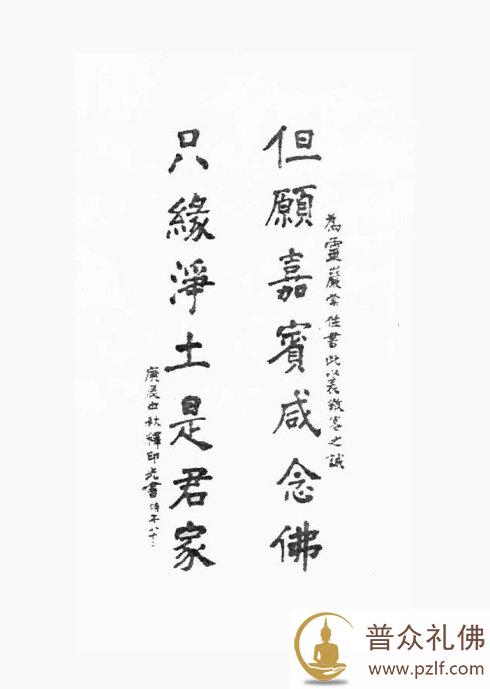 為靈巖常住書此以表敬客之誠
但願嘉賓咸念佛
只緣淨土是君家
庚辰中秋釋印光書時年八十
普众礼佛
www.pzlf.com